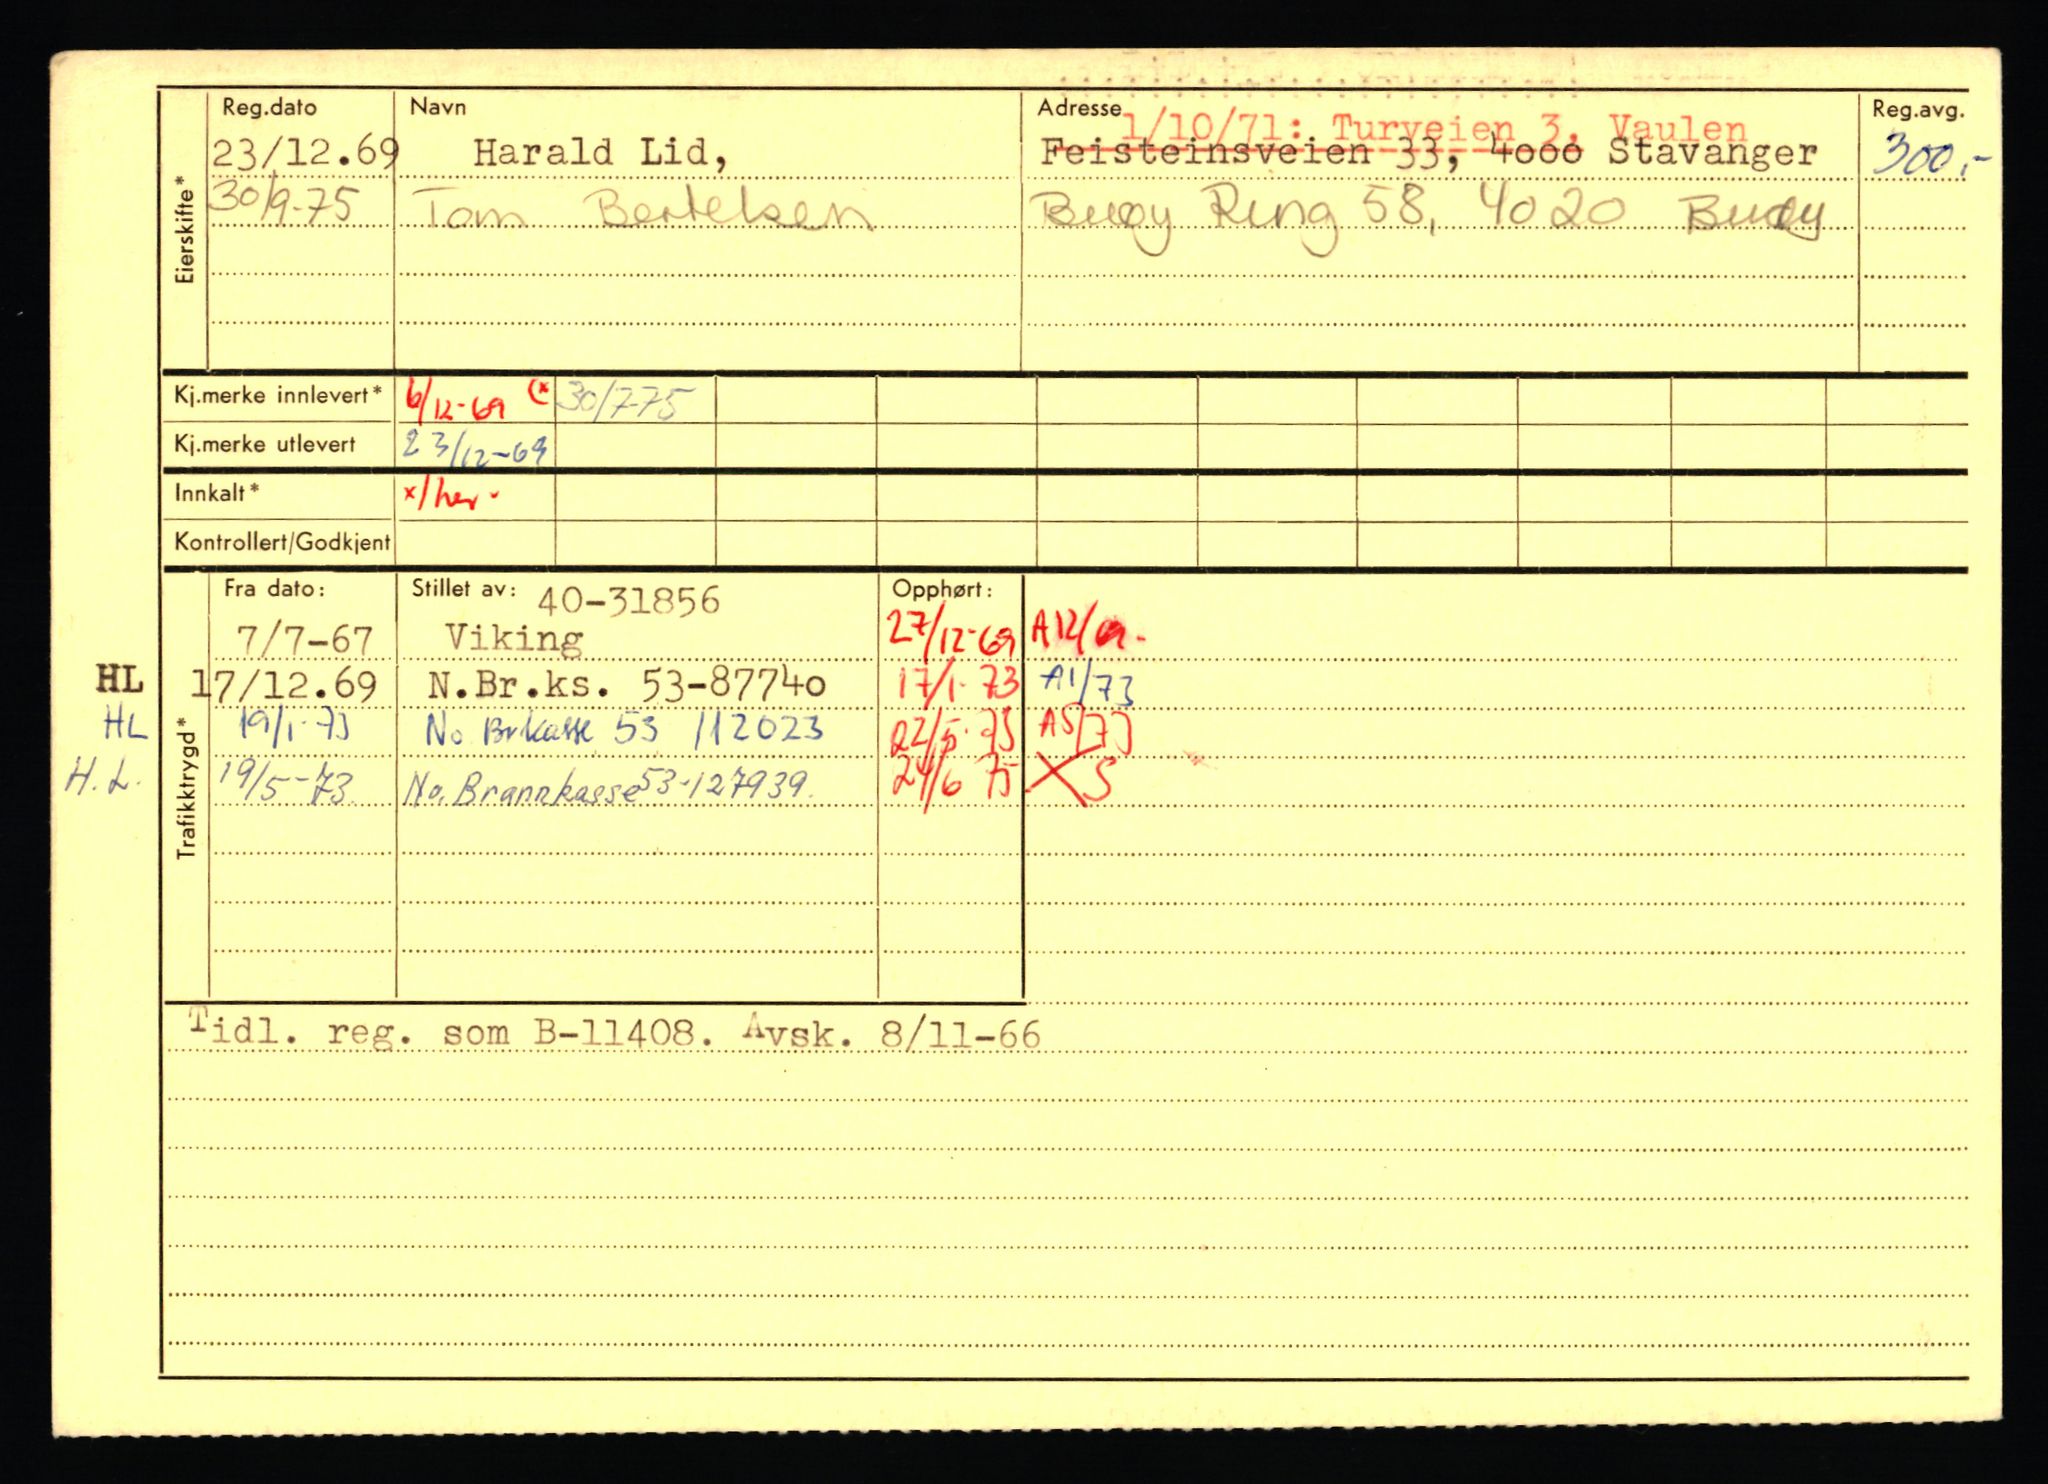 Reg.dato Navn Adresse Reg.avg.
1/10/71: Turveien 3, Vaulen
23/12.69 Harald Lid, Feisteinsveien 33, 4000 Stavanger 300,-
30/9-75 Tom Bertelsen Buøy Ring 58, 4020 Buøy
Eierskifte*
Kj.merke innlevert* 6/12-69 (* 30/7-75
Kj.merke utlevert 23/12-69
Innkalt* x/her.
Kontrollert/Godkjent
Fra dato: Stillet av: 40-31856 Opphørt:
7/7-67 Viking 27/12-69 A12/69.
HL 17/12.69 N.Br.ks. 53-87740 17/1-73 A1/73
HL 19/1-73 No Brkasse 53 112023 22/5-73 A5/73
H.L. 19/5-73. No. Brannkasse 53-127939. 24/6 75 X S
Trafikktrygd*
Tidl. reg. som B-11408. Avsk. 8/11-66